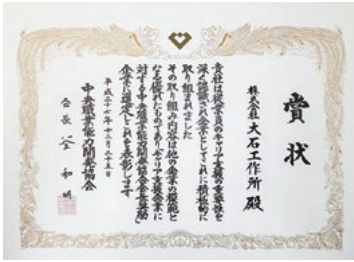 賞状
株式会社大石工作所殿
貴社は従業員のキャリア支援の重要性を
深く認識され企業としてこれに積極的に
取り組まれました
その取り組み内容は他の企業の模範と
なる優れたものでありキャリア支援企業に
対する中央職業能力開発協会会長奨励
企業に選定しこれを表彰します
平成二十七年十二月二十五日
中央職業能力開発協会
会長 和明